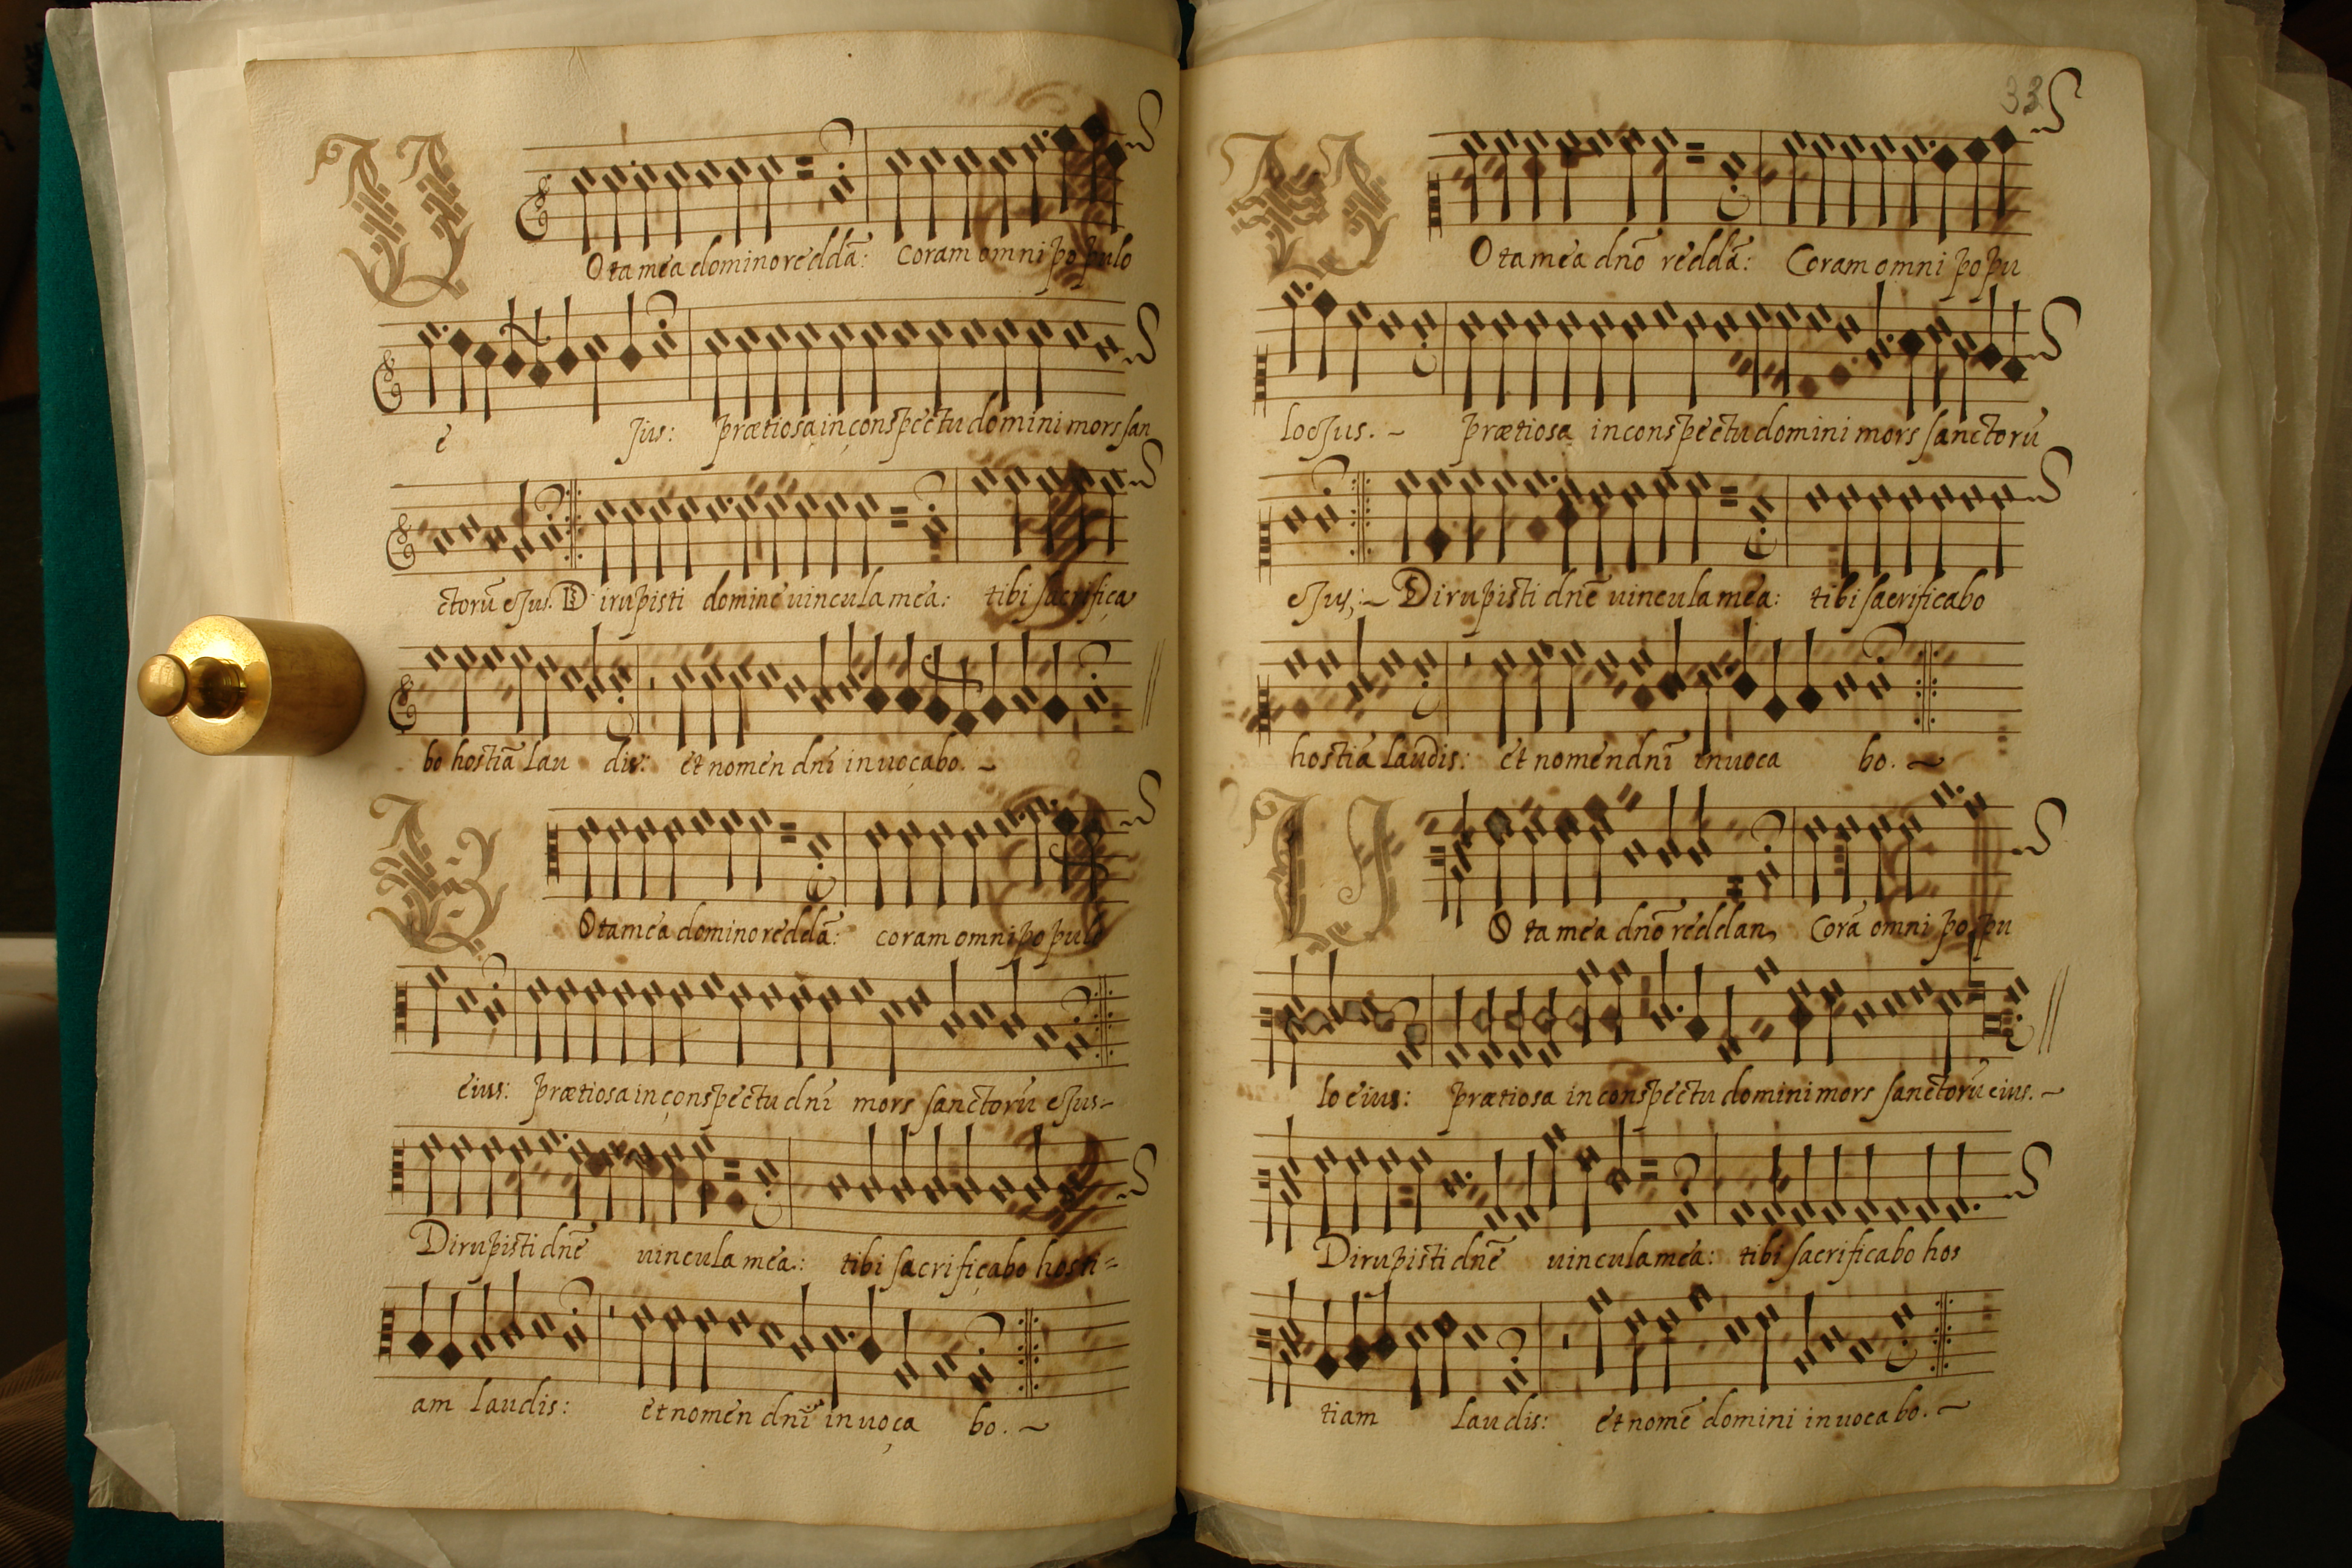 V Ota mea domino reddā: coram omni populo
e Jius: prætiosa in conspectu domini mors san
ctorū eJus. Dirupisti domine uincula mea: tibi sacrifica
bo hostiā lau dis: et nomen dnī inuocabo.
V Ota mea domino reddā: coram omni populo
eius: prætiosa in conspectu dnī mors sanctorū eJus
Dirupisti dnē uincula mea: tibi sacrificabo hosti=
am laudis: et nomen dnī inuoca bo.
33
V Ota mea dnō reddā: Coram omni popu
lo eJus. prætiosa in conspectu domini mors sanctorū
eJus, Dirupisti dnē uincula mea: tibi sacrificabo
hostiā laudis: et nomen dnī inuoca bo.
V Ota mea dnō reddan, Corā omni popu
lo eius: prætiosa in conspectu domini mors sanctorū eius.
Dirupisti dnē uincula mea: tibi sacrificabo hos
tiam laudis: et nomē domini inuocabo.